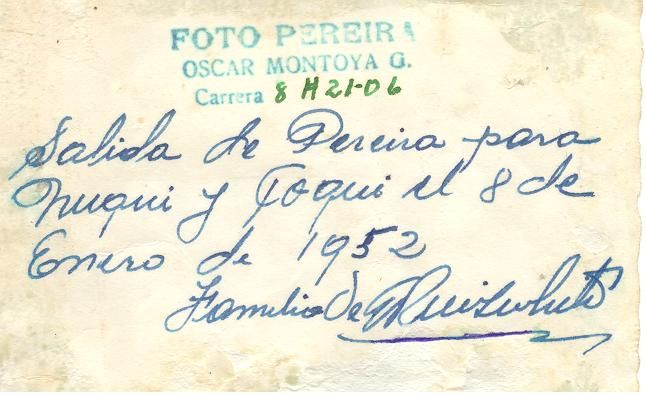 FOTO PEREIRA
OSCAR MONTOYA G.
Carrera 8 # 21-06
Salida de Pereira para
Nuqui y Joqui el 8 de
Enero de 1952
Familia de